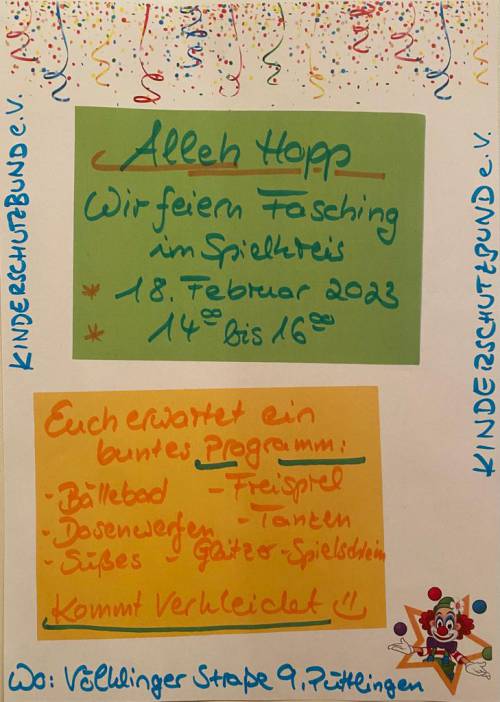 KINDERSCHUTZBUND e.V.
KINDERSCHUTZBUND e.V.
Alleh Hopp
Wir feiern Fasching
im Spielkreis
* 18. Februar 2023
* 14⁰⁰ bis 16⁰⁰
Euch erwartet ein
buntes Programm:
- Bällebad - Freispiel
- Dosenwerfen - Tanzen
- Süßes - Glitzer - Spielschleim
Kommt Verkleidet
Wo: Völklinger Straße 9, Püttlingen